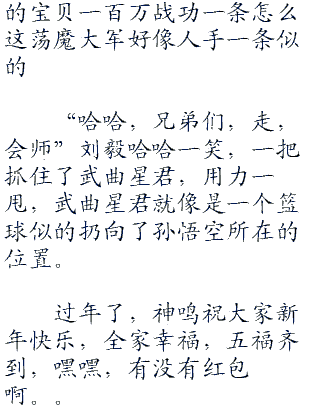 的宝贝一百万战功一条怎么
这荡魔大军好像人手一条似
的
“哈哈，兄弟们，走，
会师”刘毅哈哈一笑，一把
抓住了武曲星君，用力一
甩，武曲星君就像是一个篮
球似的扔向了孙悟空所在的
位置。
过年了，神鸣祝大家新
年快乐，全家幸福，五福齐
到，嘿嘿，有没有红包
啊。。